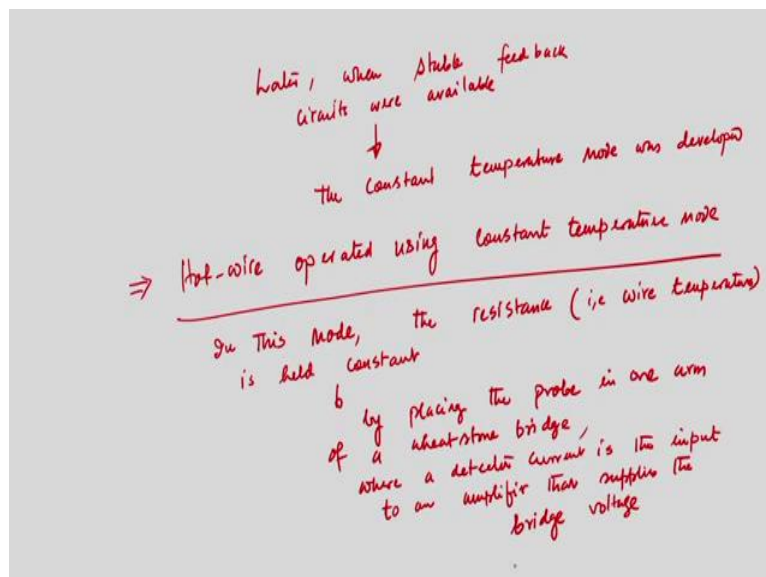 Later, when stable feedback
circuits were available
↓
The constant temperature mode was developed
⇒ Hot-wire operated using constant temperature mode
In This Mode, the resistance (i,e wire temperature)
is held constant
b
by placing the probe in one arm
of a wheatstone bridge,
where a detector current is the input
to an amplifier that supplies the
bridge voltage